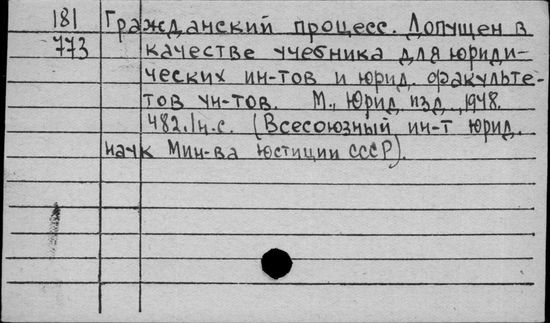 181 Гражданский процесс. Допущен в
773 качестве учебника для юриди-
ческих ин-тов и юрид. факульте-
тов ун-тов. М., Юрид. изд., 1948.
482.1н.с. (Всесоюзный ин-т юрид.
наук Мин-ва юстиции СССР).